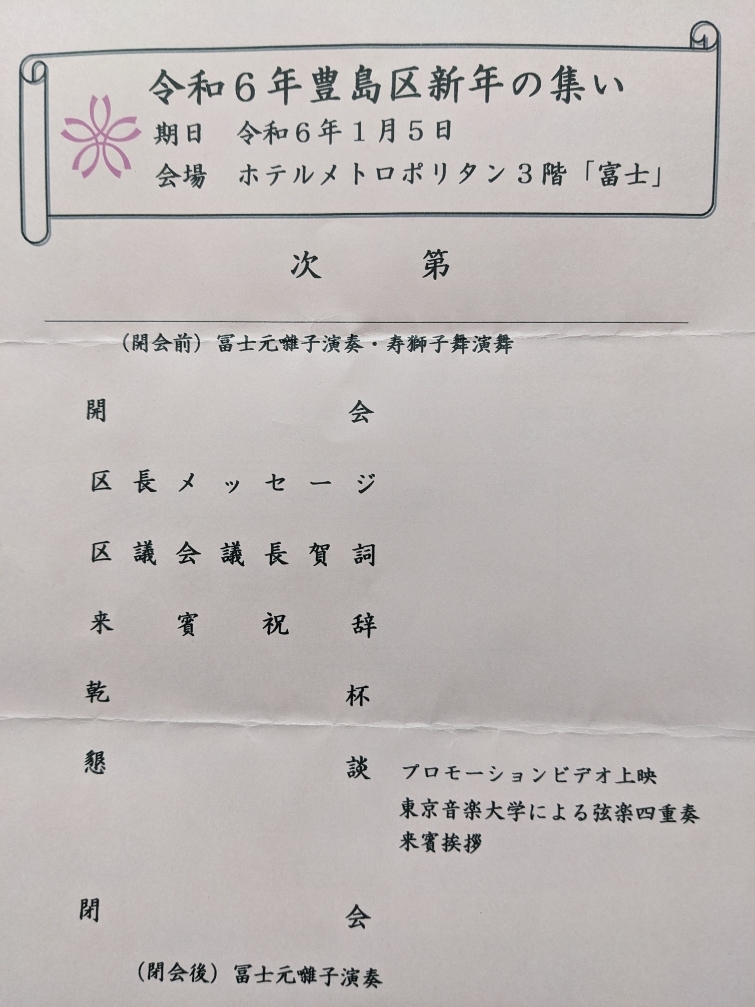 令和６年豊島区新年の集い
期日　令和６年１月５日
会場　ホテルメトロポリタン３階「富士」
次　第
（開会前）冨士元囃子演奏・寿獅子舞演舞
開　会
区長メッセージ
区議会議長賀詞
来賓祝辞
乾　杯
懇　談　プロモーションビデオ上映
東京音楽大学による弦楽四重奏
来賓挨拶
閉　会
（閉会後）冨士元囃子演奏